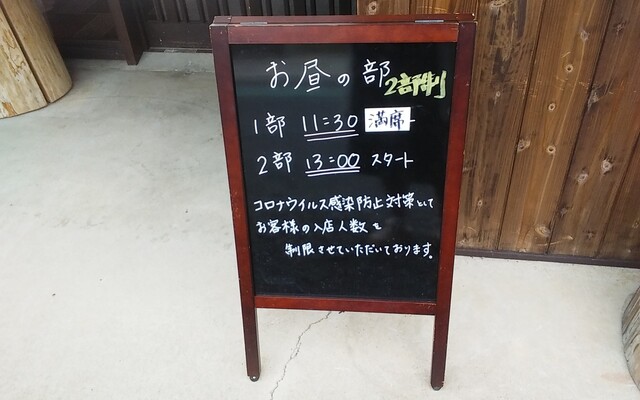 お昼の部 2部制
1部 11:30 満席
2部 13:00 スタート
コロナウイルス感染防止対策として
お客様の入店人数を
制限させていただいております。